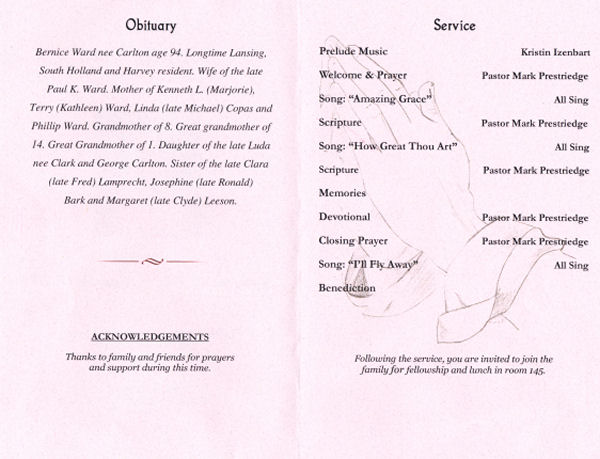 Obituary
Bernice Ward nee Carlton age 94. Longtime Lansing,
South Holland and Harvey resident. Wife of the late
Paul K. Ward. Mother of Kenneth L. (Marjorie),
Terry (Kathleen) Ward, Linda (late Michael) Copas and
Phillip Ward. Grandmother of 8. Great grandmother of
14. Great Grandmother of 1. Daughter of the late Luda
nee Clark and George Carlton. Sister of the late Clara
(late Fred) Lamprecht, Josephine (late Ronald)
Bark and Margaret (late Clyde) Leeson.
ACKNOWLEDGEMENTS
Thanks to family and friends for prayers
and support during this time.
Service
Prelude Music Kristin Izenbart
Welcome & Prayer Pastor Mark Prestriedge
Song: “Amazing Grace” All Sing
Scripture Pastor Mark Prestriedge
Song: “How Great Thou Art” All Sing
Scripture Pastor Mark Prestriedge
Memories
Devotional Pastor Mark Prestriedge
Closing Prayer Pastor Mark Prestriedge
Song: “I’ll Fly Away” All Sing
Benediction
Following the service, you are invited to join the
family for fellowship and lunch in room 145.